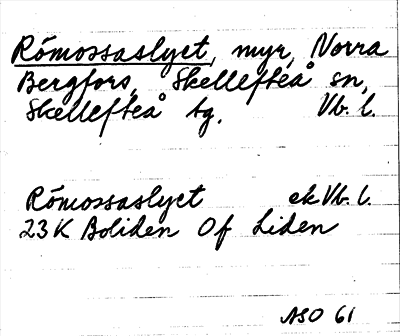 Römossaslyet, myr, Norra
Bergfors, Skellefteå sn,
Skellefteå tg. Vb. l.
Römossaslyet ek Vb. l.
23K Boliden 0f Liden
ASO 61